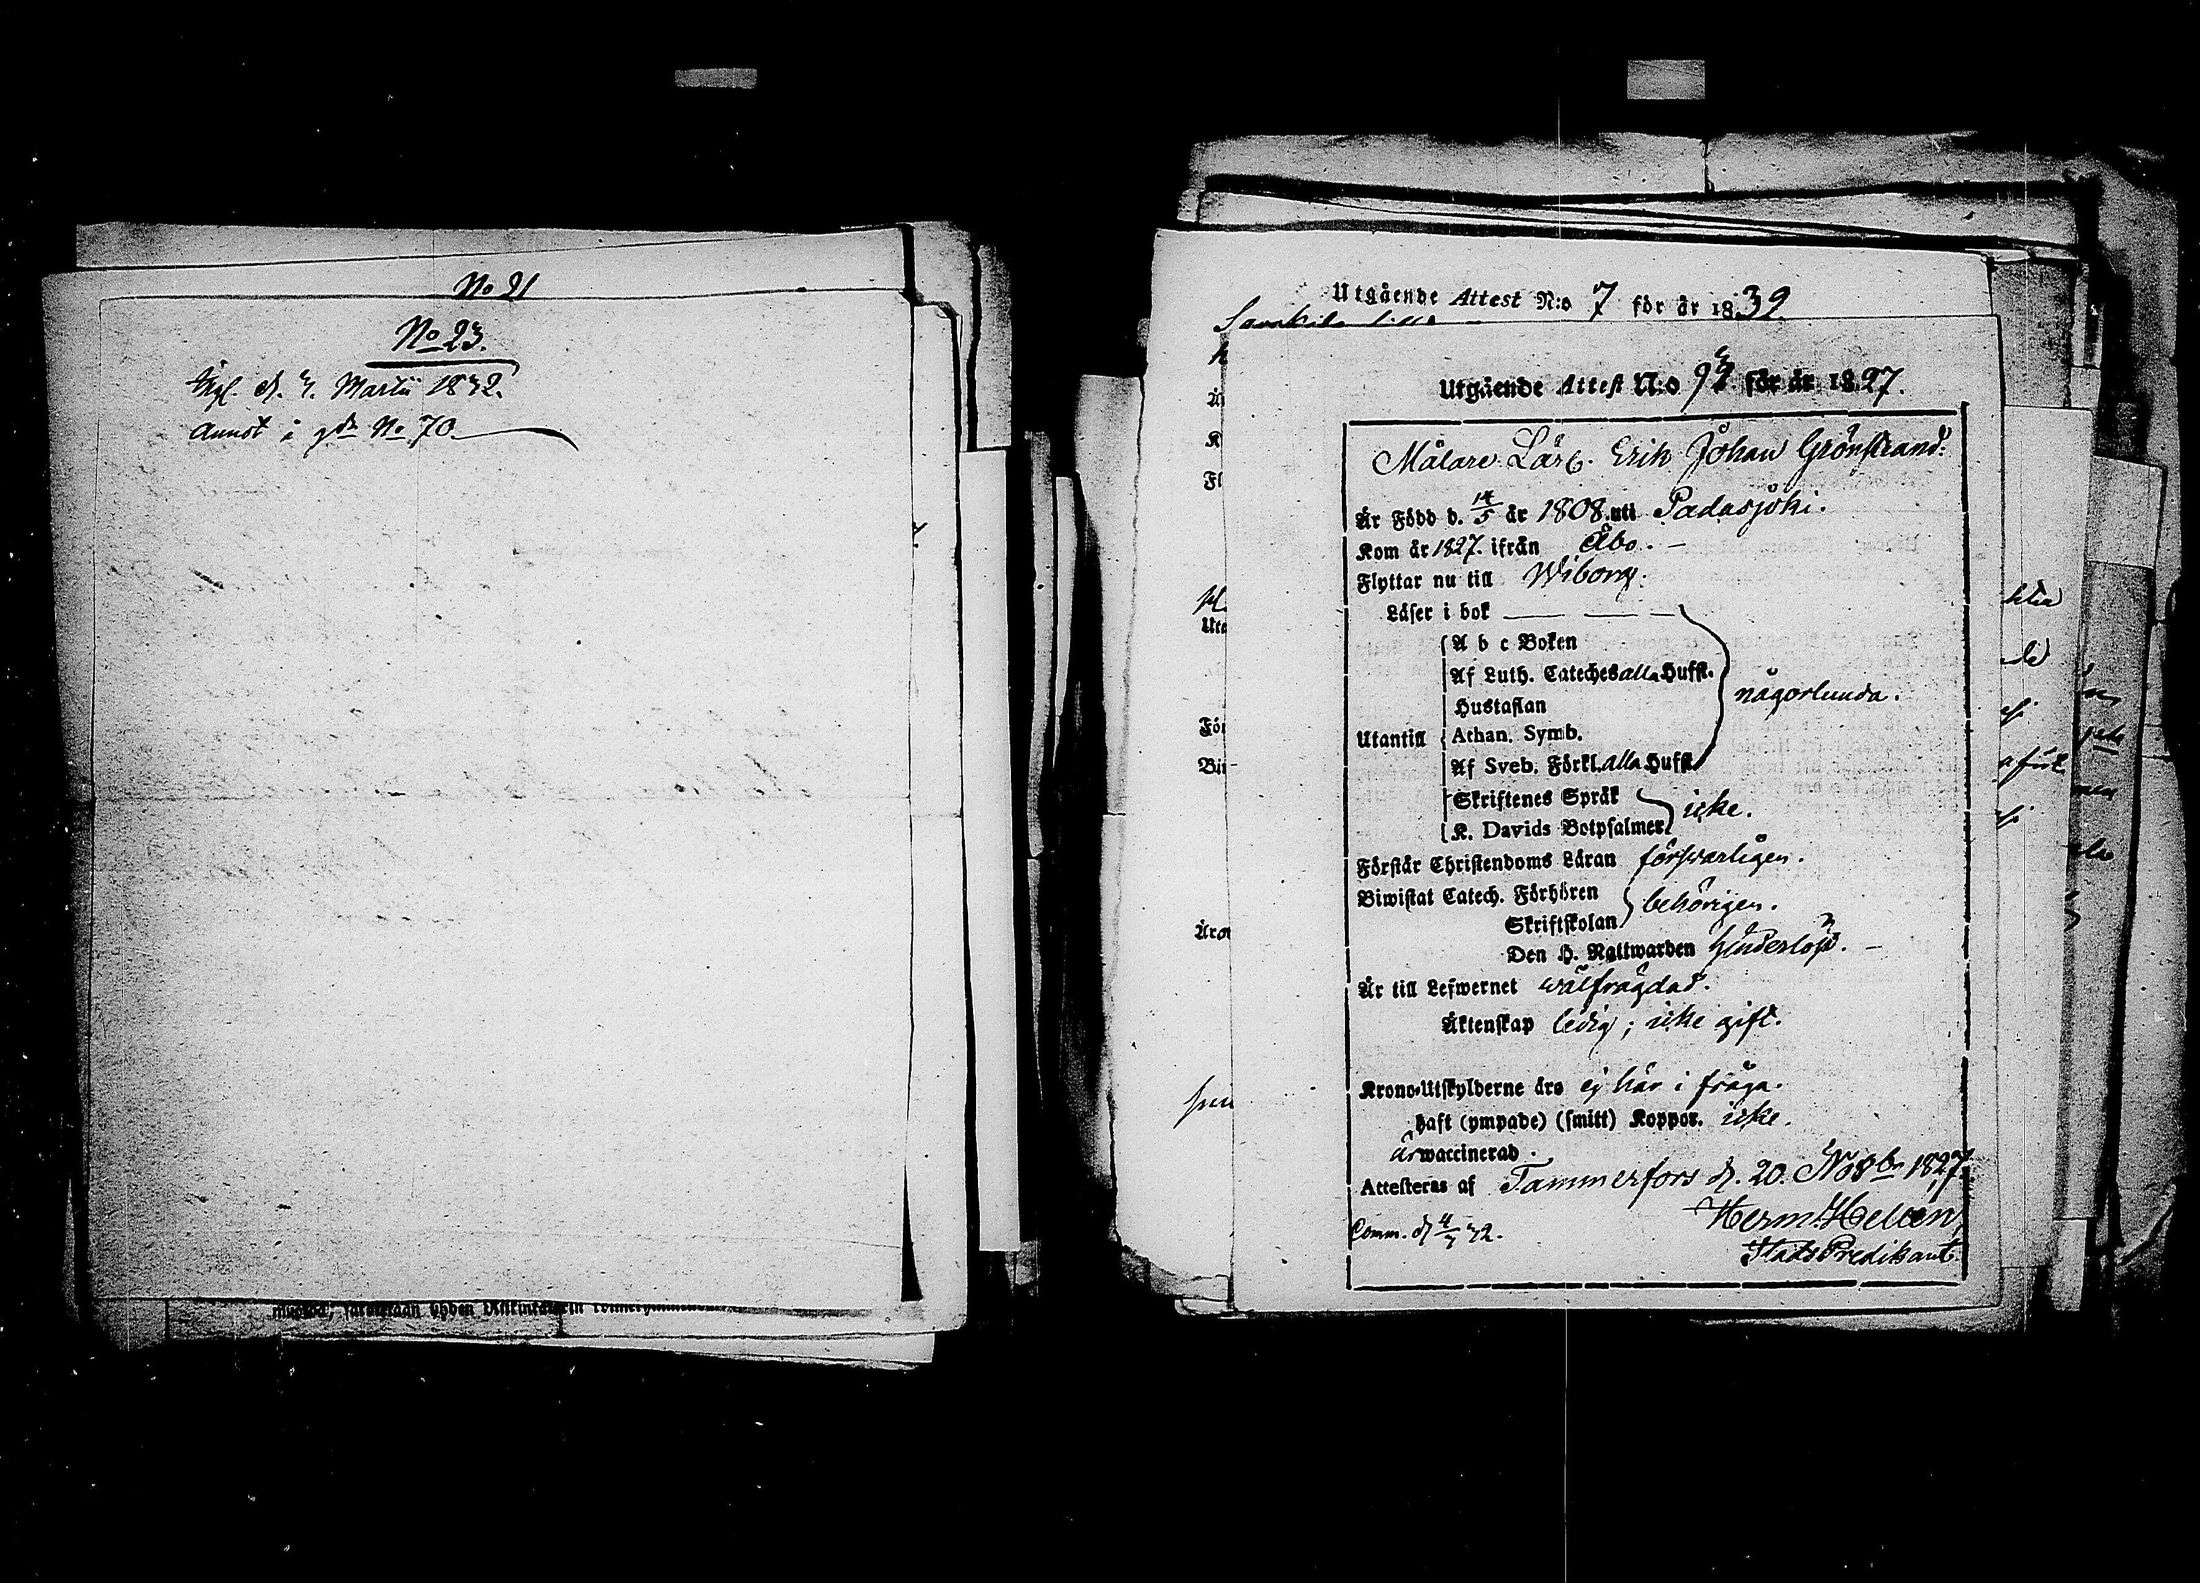 No 21
No 23.
Ingl. d. 3. Martii 1832.
Annot å gdn No 70.
Utgående Attest N:o 7 för år 1839.
Utgående Attest N:o 93 för år 1827.
Målare Lärl. Erik Johan Grönstrand.
Är Född d. 14/5 år 1808 uti Padasjoki.
Kom år 1827. ifrån Åbo. –
Flyttar nu till Wiborg.
Läser i bok
A b c Boken
Af Luth. Cateches alla Hufst.
Hustaflan
någorlunda.
Utantill Athan. Symb.
Af Sveb. Förkl. alla Hufst.
Skriftenes Språk
icke.
K. Davids Botpsalmer
Förstår Christendoms Läran försvarligen.
Biwistat Catech. Förhören
behörigen.
Skriftskolan
Den H. Nattwarden hinderlös. –
Är till Lefwernet wälfrägdad.
Äktenskap ledig; icke gift.
Krono-Utskylderne äro ej här i fråga.
haft (ympade) (smitt) Koppor. icke.
är waccinerad.
Attesteras af Tammerfors d. 20. Novbr 1827.
Herm. Hellén,
Stads Predikant.
Comm. d 4/3 32.